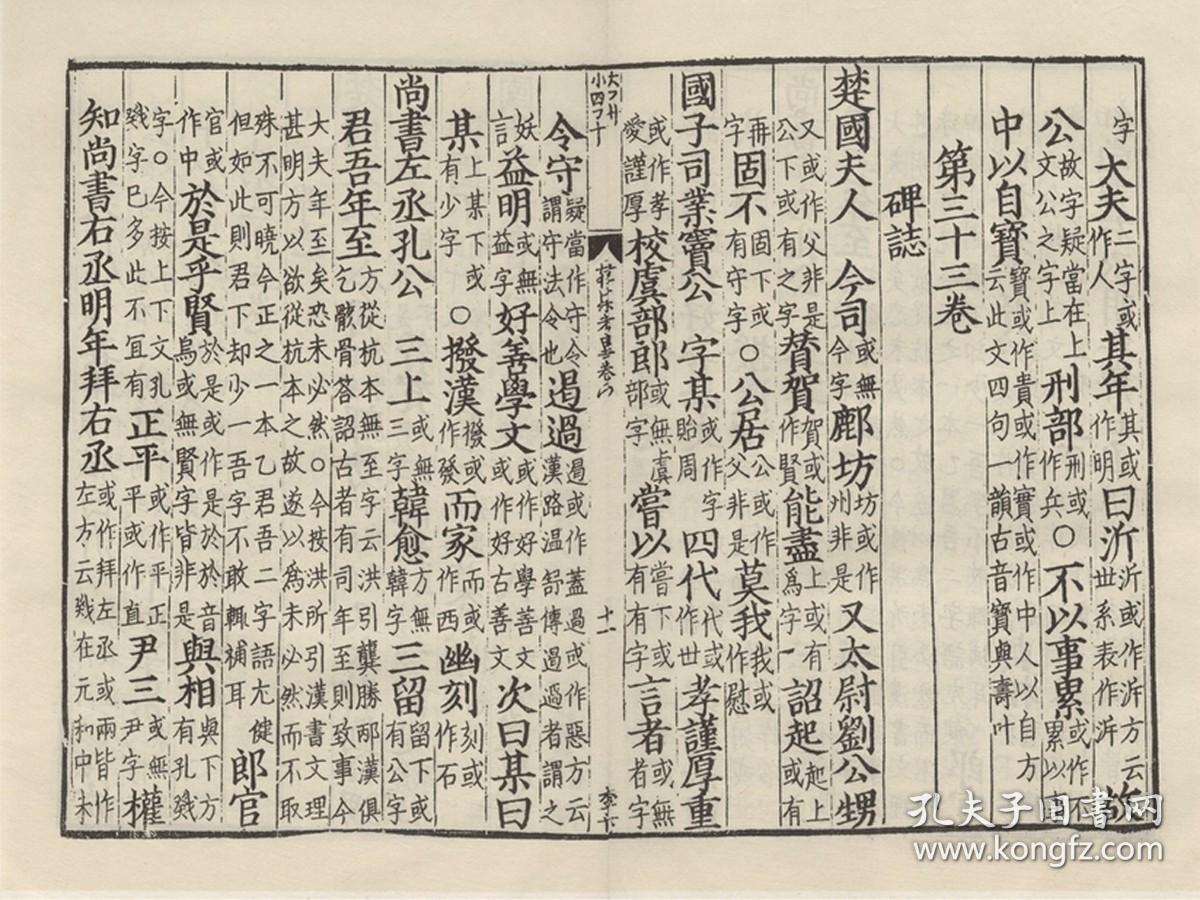 字大夫二字或作人其年其或作明曰沂沂或作泝方云世系表作泝故
公故字疑當在上文公之字上刑部刑或作兵○不以事累或作不累以事
中以自寶寶或作貴或作實或作中人以自方云此文四句一韻古音寶與壽叶
第三十三卷
碑誌
楚國夫人今司或無今字鄜坊坊或作州非是又太尉劉公甥
又或作父非是公下或有之字贊賀賀或作賢能盡上或有為字一詔起起上或有
再字固不固下或有守字○公居公或作父非是莫我我或作慰
國子司業竇公字某或作字貽周四代代或作世孝謹厚重
或作孝愛謹厚校虞部郎或無虞部字嘗以嘗下或有有字言者或無者字
大フ廿
小四フ十
十一
令守疑當作守令謂守法令也過過過或作蓋過或作惡方云漢路温舒傳過過者謂之
妖言益明或無益字好善學文或作好學善文或作好古善文次曰某曰
某上某下或有少字○撥漢撥或作發而家而或作西幽刻刻或作石
尚書左丞孔公三上或無三字韓愈方無韓字三留留下或有公字
君吾年至方從杭本無至字云洪引龔勝邴漢俱乞骸骨答詔古者有司年至則致事今
大夫年至矣恐未必然○今按洪所引漢書文理甚明方以欲從杭本之故遂以為未必然而不取
殊不可曉今正之一本乙君吾二字語尤健但如此則君下却少一吾字不敢輒補耳郎官
官或作中於是乎賢於是或作是於於音烏或無賢字皆非是與相與下方有孔戣
字○今按上下文孔戣字已多此不宜有正平或作平正平或作直尹三或無尹字權
知尚書右丞明年拜右丞或作拜左丞或兩皆作左方云戣在元和中未
孔夫子旧书网
www.kongfz.com